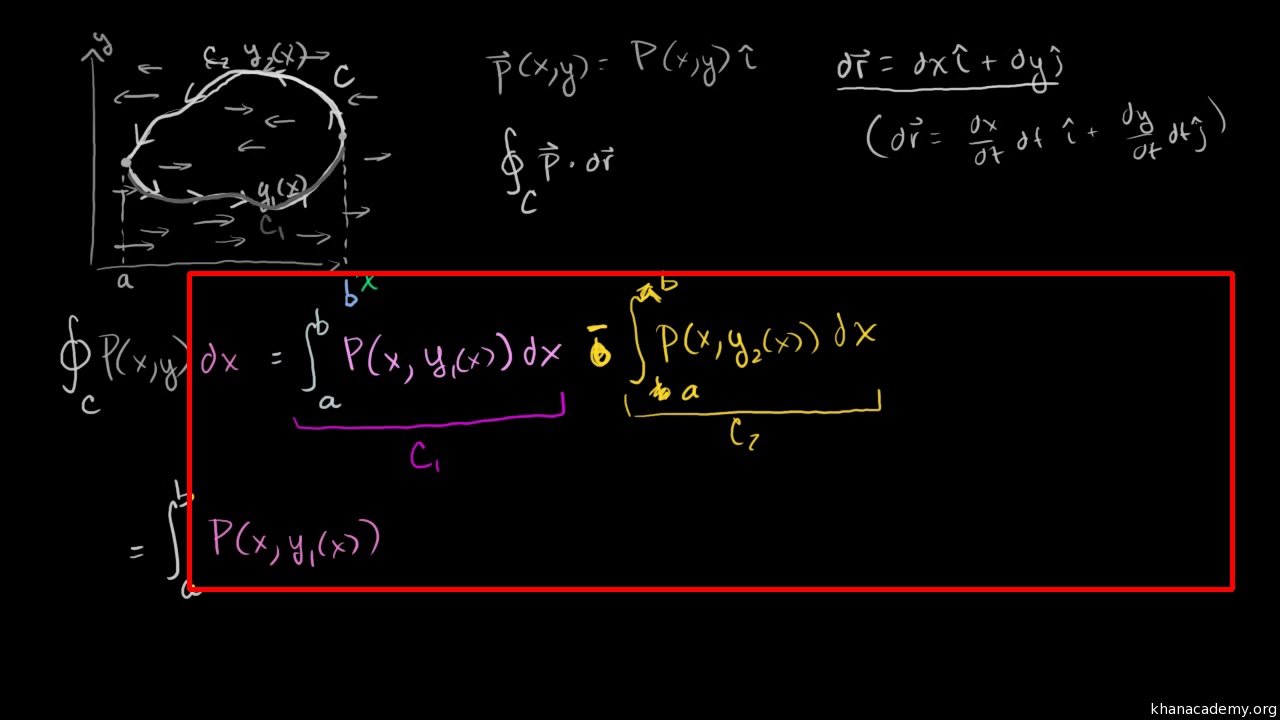 y
C₂ y₂(x)
C
y₁(x)
C₁
a
b x
p⃗(x,y) = P(x,y) î
dr⃗ = dx î + dy ĵ
(dr⃗ = dx/dt dt î + dy/dt dt ĵ)
∮_C p⃗ · dr⃗
∮_C P(x,y) dx = ∫_a^b P(x, y₁(x)) dx - ∫_a^b P(x, y₂(x)) dx
C₁ C₂
= ∫_a^b P(x, y₁(x))
khanacademy.org